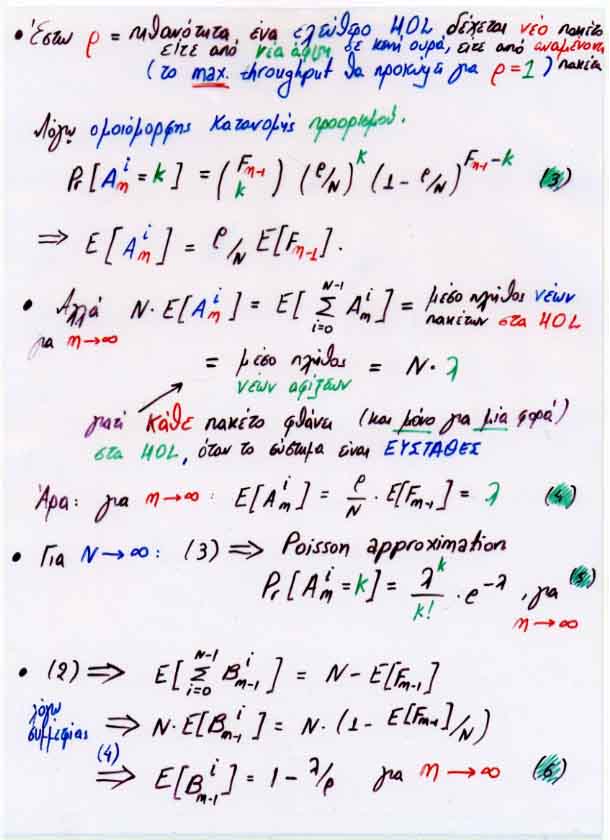 • Έστω ρ = πιθανότητα, ένα ελεύθερο HOL δέχεται νέο πακέτο
είτε από νέα άφιξη σε κενή ουρά, είτε από αναμένοντα
(το max. throughput θα προκύψει για ρ = 1) πακέτα
Λόγω ομοιόμορφης κατανομής προορισμού.
Pr[A^i_m = k] = (F_{m-1} k) (ρ/N)^k (1 - ρ/N)^{F_{m-1} - k} (3)
⇒ E[A^i_m] = ρ/N E[F_{m-1}].
• Αλλά N·E[A^i_m] = E[∑_{i=0}^{N-1} A^i_m] = μέσο πλήθος νέων
για m→∞ πακέτων στα HOL
= μέσο πλήθος = N·λ
νέων αφίξεων
γιατί κάθε πακέτο φθάνει (και μόνο για μία φορά)
στα HOL, όταν το σύστημα είναι ΕΥΣΤΑΘΕΣ
Άρα: για m→∞: E[A^i_m] = ρ/N · E[F_{m-1}] = λ (4)
• Για N→∞: (3) ⇒ Poisson approximation
Pr[A^i_m = k] = λ^k/k! · e^{-λ}, για (5)
m→∞
• (2) ⇒ E[∑_{i=0}^{N-1} B^i_{m-1}] = N - E[F_{m-1}]
λόγω συμμετρίας ⇒ N·E[B^i_{m-1}] = N·(1 - E[F_{m-1}]/N)
(4) ⇒ E[B^i_{m-1}] = 1 - λ/ρ για m→∞ (6)